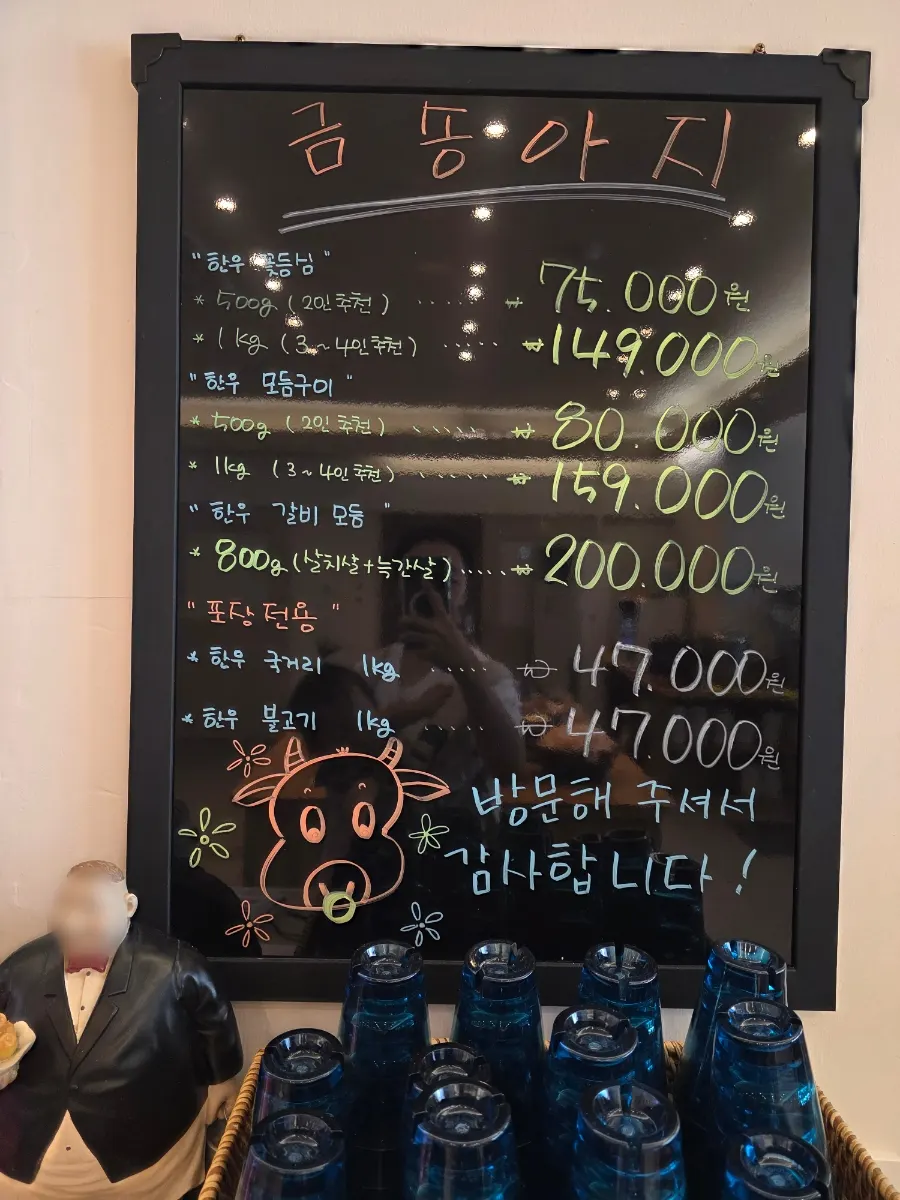 금 송 아 지
" 한우 꽃등심 "
* 500g ( 2인 추천 ) ····· ₩ 75.000원
* 1 kg ( 3 ~ 4인 추천 ) ····· ₩ 149.000원
" 한우 모듬구이 "
* 500g ( 2인 추천 ) ····· ₩ 80.000원
* 1kg ( 3 ~ 4인 추천 ) ····· ₩ 159.000원
" 한우 갈비 모듬 "
* 800g (살치살+늑간살) ····· ₩ 200.000원
" 포장 전용 "
* 한우 국거리 1kg ····· ₩ 47.000원
* 한우 불고기 1kg ····· ₩ 47.000원
방문해 주셔서
감사합니다 !